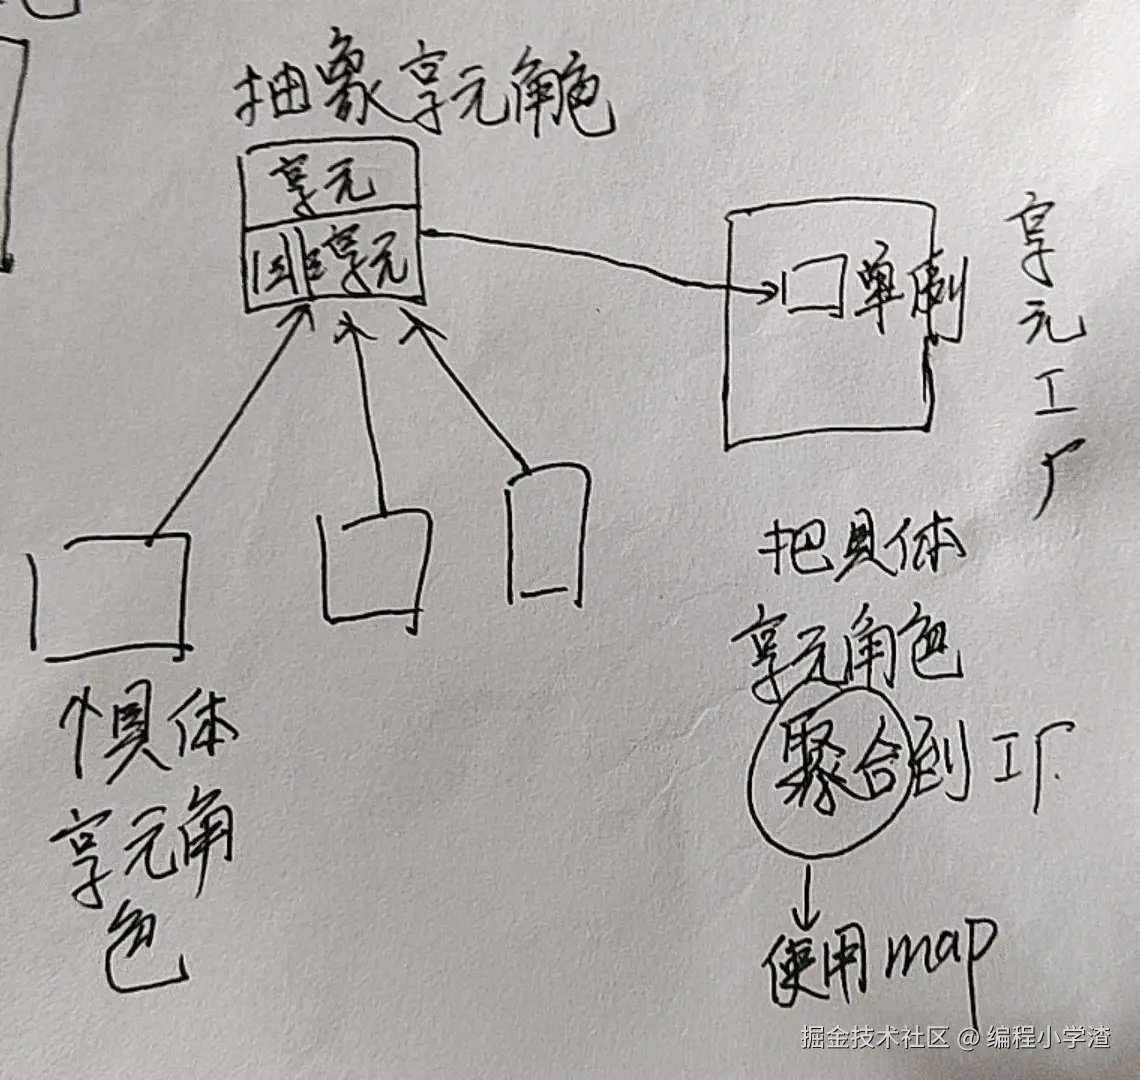 抽象享元角色
享元
非享元
单例
享元工厂
具体
享元角
色
把具体
享元角色
聚合到工厂
使用map
掘金技术社区 @ 编程小学渣